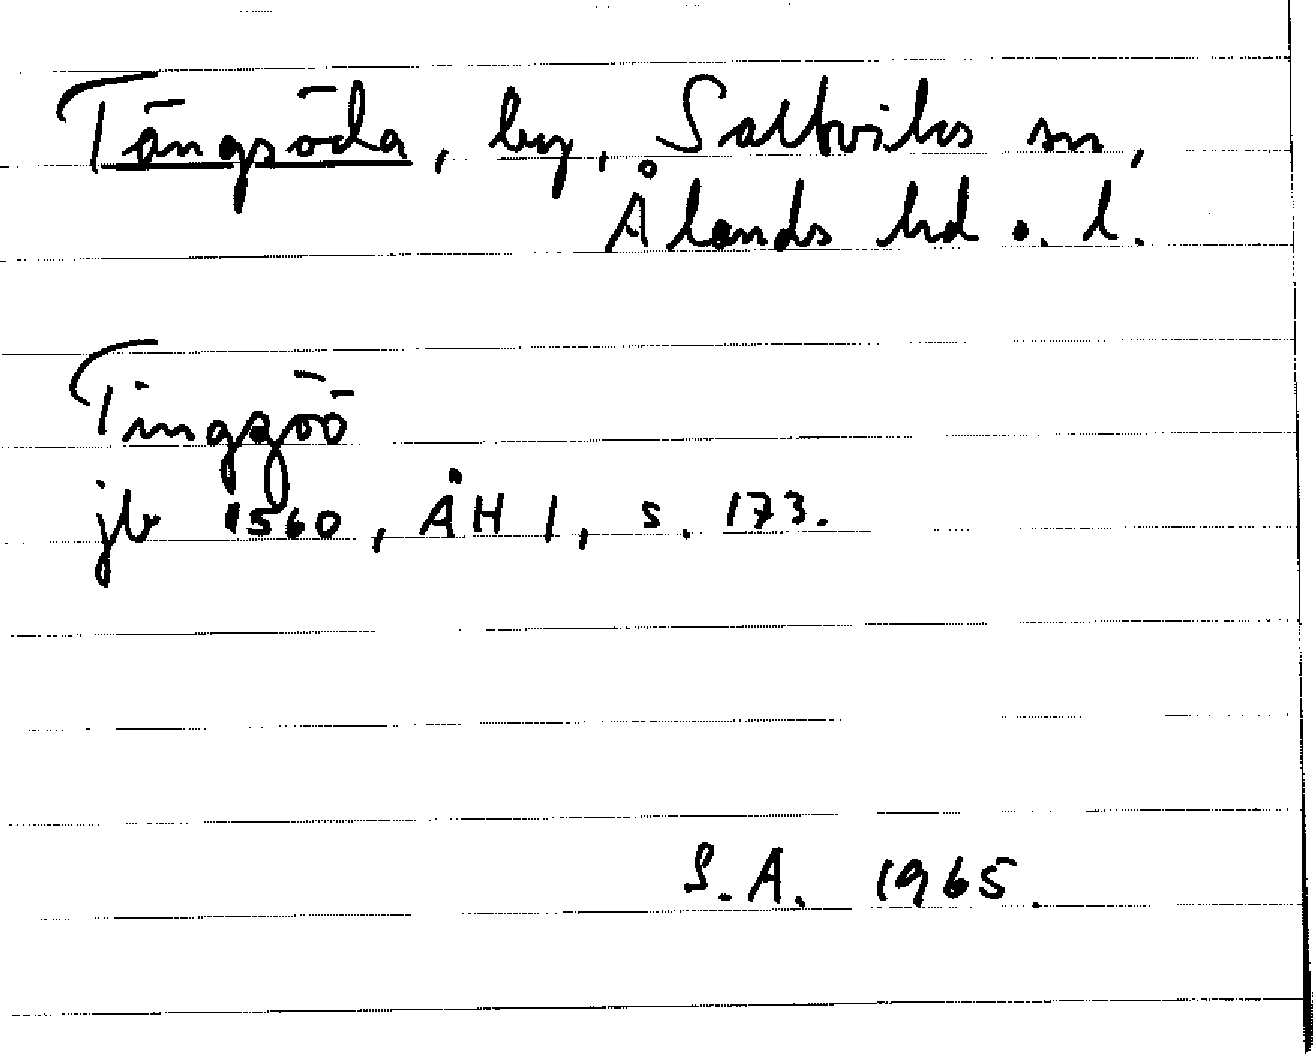 Tängsöda, by, Saltviks sn,
Ålands hd o. l.
Tingzöö
jb 1560, ÅH I, s. 173.
S.A. 1965.